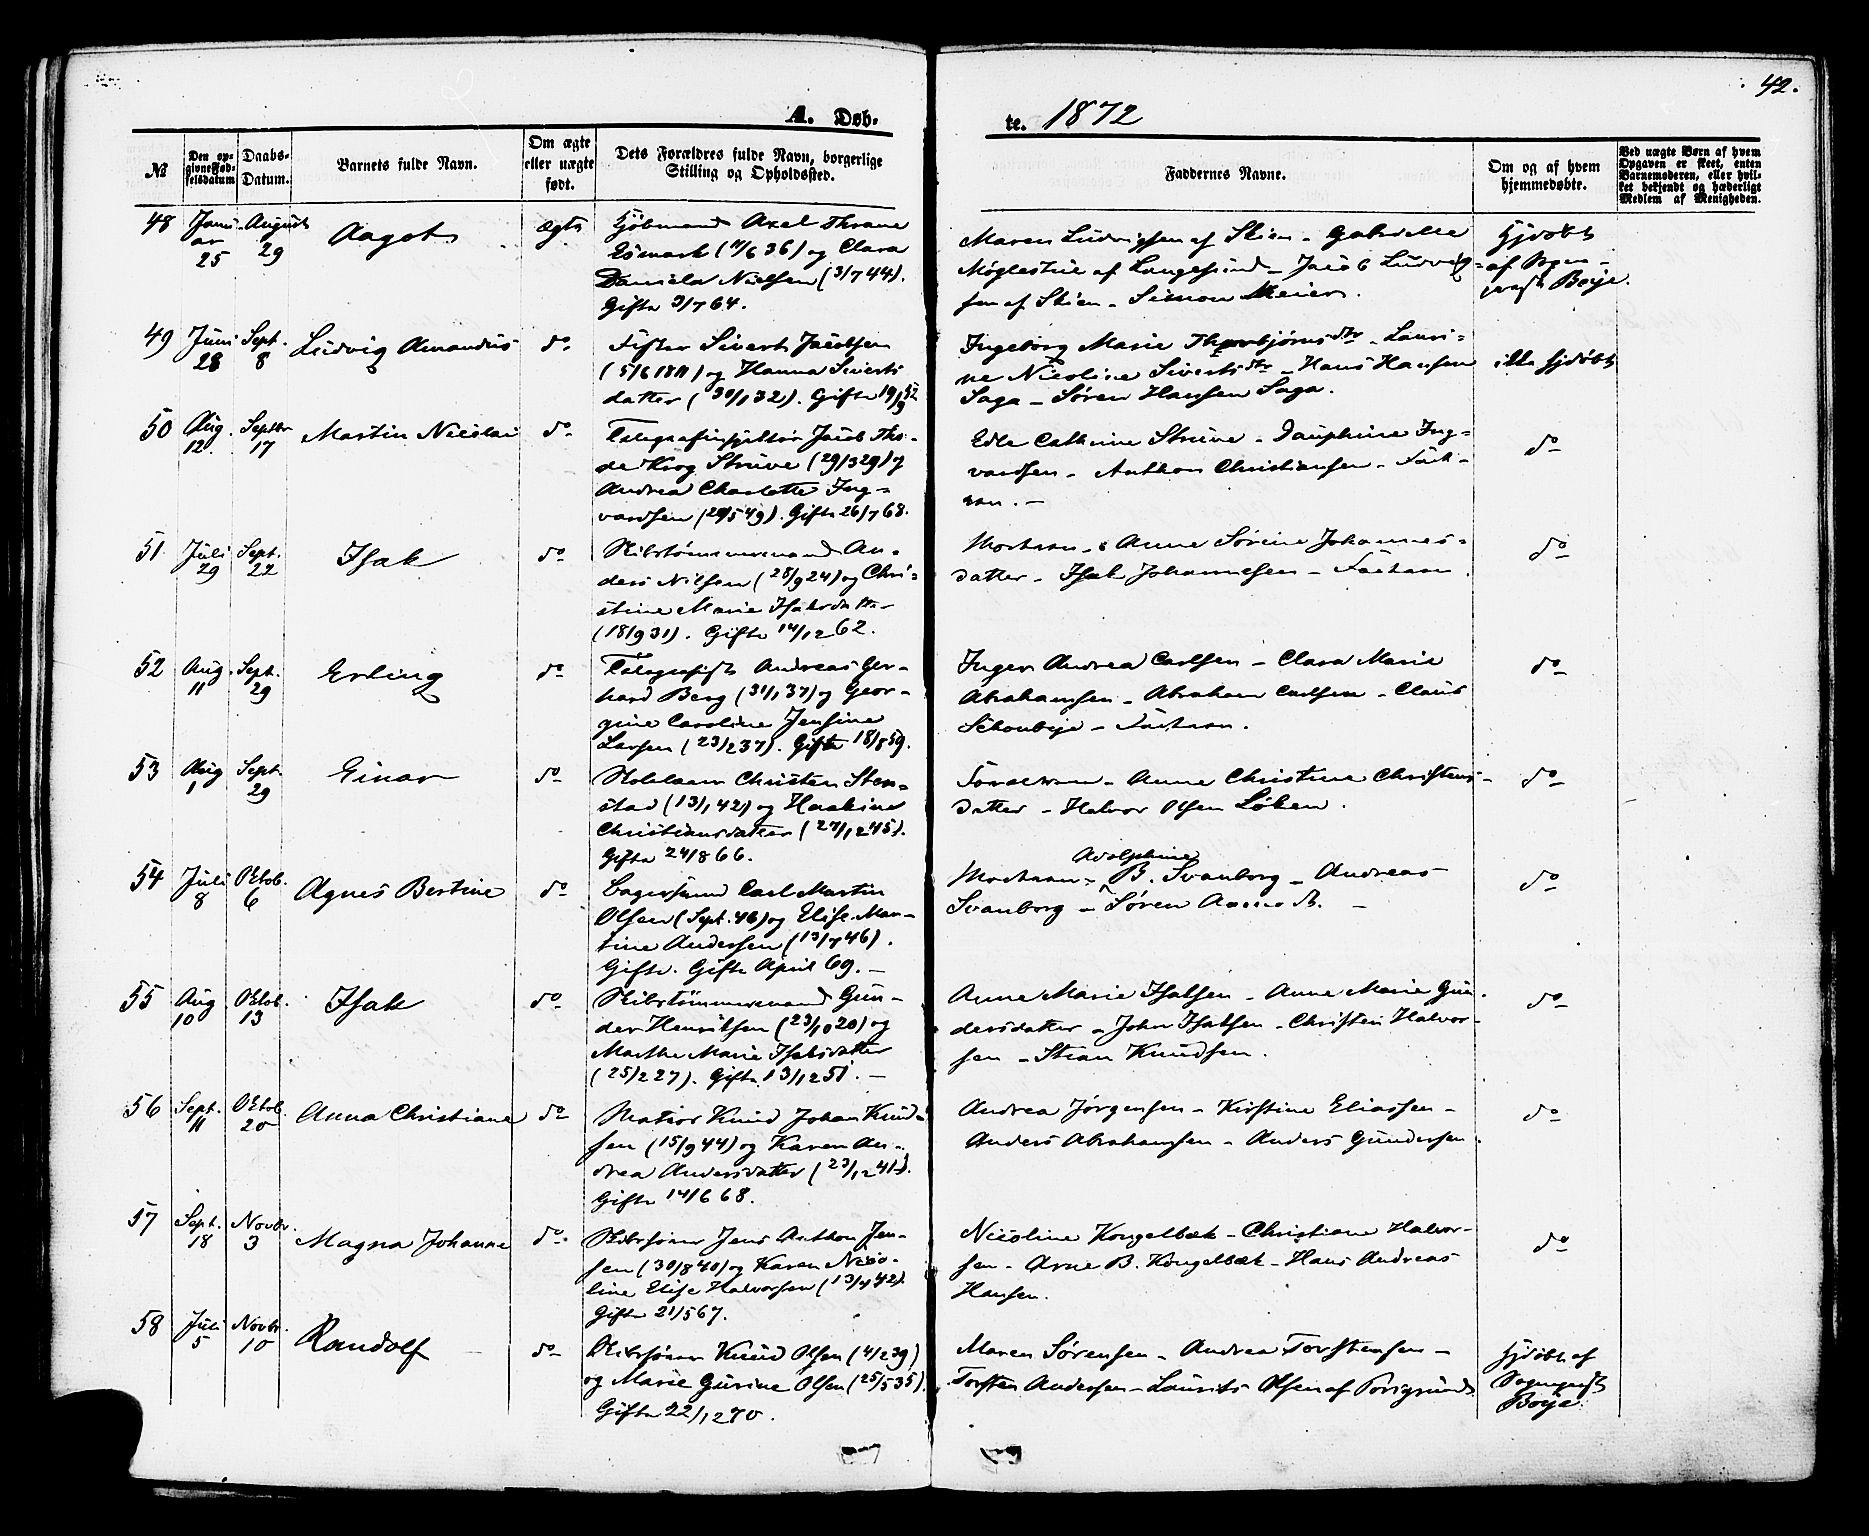 42.
A. Døb-
te. 1872
№
Den op-
givne Fød-
selsdatum
Daabs-
Datum.
Barnets fulde Navn.
Om ægte
eller uægte
født.
Dets Forældres fulde Navn, borgerlige
Stilling og Opholdssted.
Faddernes Navne.
Om og af hvem
hjemmedøbte.
Ved uægte Børn af hvem
Opgaven er skeet, enten
Barnemoderen, eller hvil-
ket bekjendt og hæderligt
Medlem af Menigheden.
48
Janu-
ar
25
August
29
Aagot
ægte
Kjøbmand Axel Thrane
Esmark (11/6 36) og Clara
Daniela Nielsen (3/7 44).
Gifte 3/7 64.
Maren Ludvigsen af Skien - Gabrielle
Møglestue af Langesund - Jacob Ludvig-
sen af Skien - Simon Meier.
hjdøbt
af Sogne-
præst Boye.
49
Juni
28
Sept.
8
Ludvig Amandus
do
Fisker Sivert Jacobsen
(5/6 18) og Hanna Siverts
datter (30/1 32). Gifte
Ingeborg Marie Thorbjørnsdtr - Lauri-
ne Nicoline Sivertsdtr - Hans Hansen
Saga - Søren Hansen Saga.
ikke hjdøbt
50
Aug.
12.
Septbr
17
Martin Nicolai
do
Telegrafinspektør Jacob Tho-
de Krog Struve (29/3 29) og
Andrea Charlotte Ing-
vardsen (29/5 49). Gifte 26/7 68.
Edle Cathrine Struve - Dauphine Ing-
vardsen - Anthon Christiansen - Fark-
ran. -
do
51
Juli
29
Sept.
22
Isak
do
Skibstømmermand An-
ders Nilsen (28/9 24) og Chri-
stine Marie Isaksdtr
(18/9 31). Gifte 14/12 62.
Mochsen - Anne Sørine Johannes-
datter - Isak Johannesen - Farhaan.
do
52
Aug.
11
Sept.
29
Erling
do
Telegrafist Andreas Ger-
hard Berg (31/1 37) og Geor-
gine Caroline Jensine
Larsen (23/2 37). Gifte 18/8 59.
Inger Andrea Carlsen - Clara Marie
Abrahamsen - Abraham Carlsen - Claus
Schoubye - Farhaan.
do
53
Aug
1
Sept.
29
Einar
do
Christen Sten-
stad (13/1 42) og Haakine
Christiansdatter (27/12 45).
Gifte 24/8 66.
Anne Christine Christens-
datter - Halvor Olsen Løken.
do
54
Juli
8
Oktob.
6
Agnes Bertine
do
Carl Martin
Olsen (Sept. 46) og Elise Mar-
tine Andersen (13/7 46).
Gifte. Gifte April 69. -
Adolphine
B. Svanborg - Andreas
Svanborg - Søren
do
55
Aug
10
Oktob.
13
Isak
do
Skibstømmermand Gun-
der Henriksen (23/10 20) og
Marthe Marie Isaksdatter
(25/2 27). Gifte 13/12 51. -
Anne Marie Isaksen - Anne Marie Gun-
dersdatter - John Isaksen - Christen Halvor-
sen - Stian Knudsen.
do
56
Sept.
11
Oktob.
20
Anna Christiane
do
Matros Knud Johan Knud-
sen (15/9 44) og Karen An-
drea Andersdatter (23/12 41).
Gifte 14/6 68.
Andrea Jørgensen - Kirstine Eliassen -
Anders Abrahamsen - Anders Gundersen.
do
57
Sept.
18
Novbr.
3
Magna Johanne
do
Skibsfører Jens Anthon Jen-
sen (30/8 40) og Karen Nico-
line Elise Halvorsen (13/4 42).
Gifte 21/5 67.
Nicoline Kongelbæk - Christiane Halvor-
sen - Arne B. Kongelbæk - Hans Andreas
Hansen.
do
58
Juli
5
Novbr.
10
Randolf
do
Skibsfører Knud Olsen (4/2 39)
og Marie Gurine Olsen (25/5 35).
Gifte 22/12 70.
Maren Sørensen - Andrea Torstensen -
Torsten Andersen - Laurits Olsen af Porsgrund.
hjdøbt af
Sognepræst
Boye.